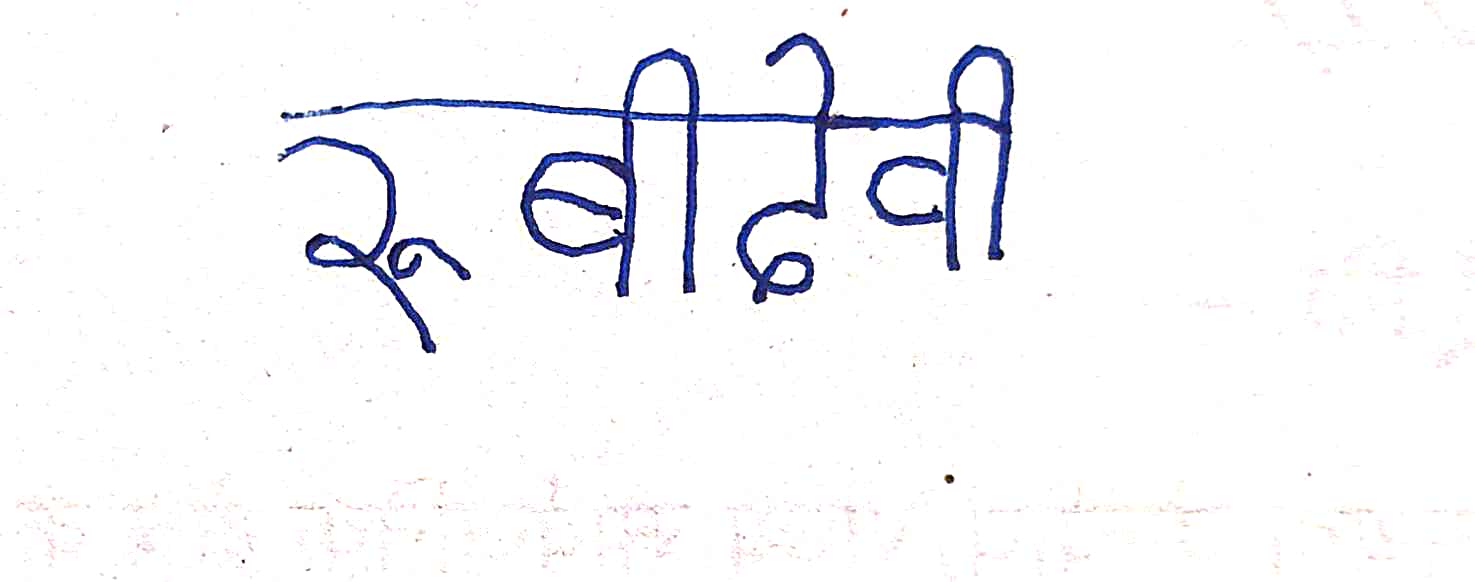 रूबीदेवी